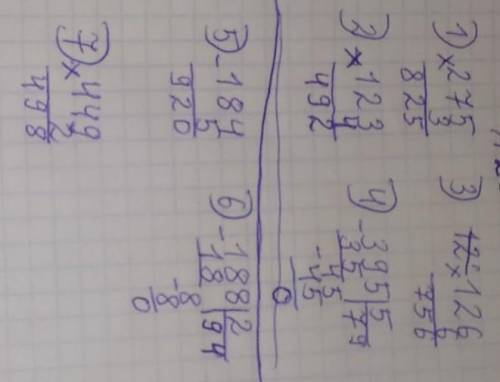 1) ×275
3
825
2) ×123
4
492
3) ×126
6
756
4) -395|5
35|79
-45
45
0
5) -184
5
920
6) -188|2
18|94
-8
8
0
7) ×449
2
498